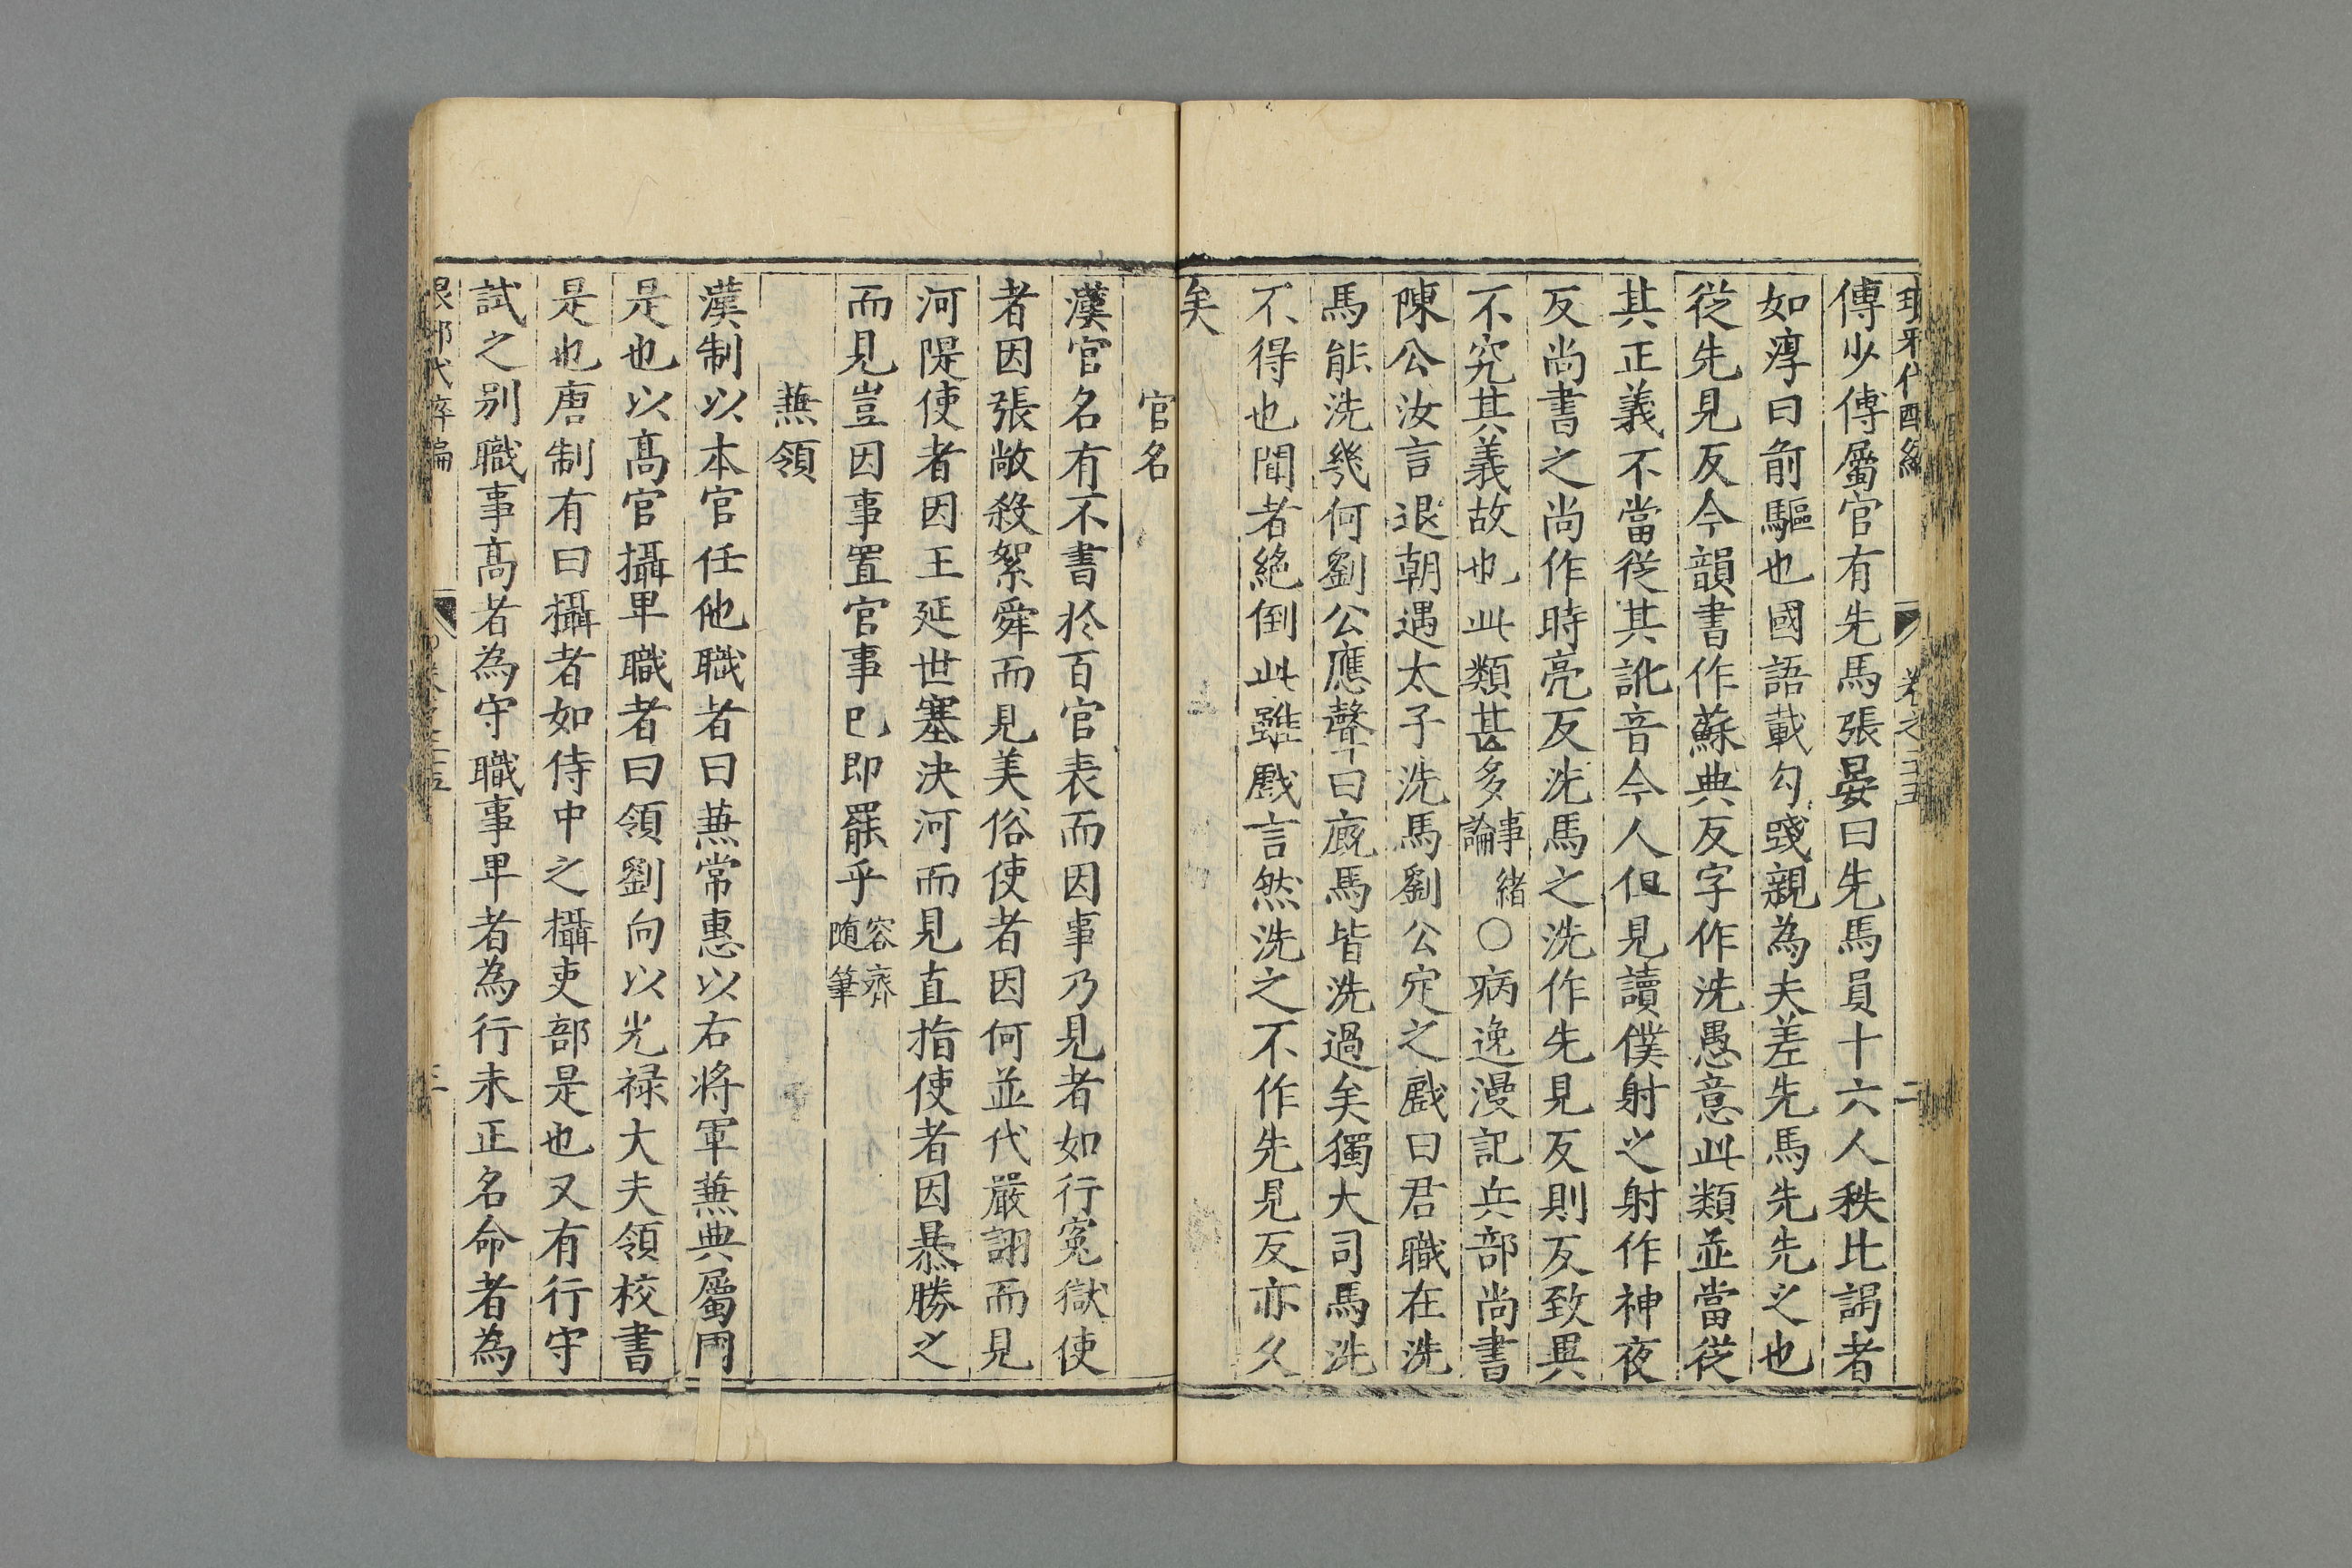 傅少傅屬官有先馬張晏曰先馬員十六人秩比謁者
如淳曰前驅也國語載勾踐親為夫差先馬先先之也
從先見反今韻書作蘇典反字作洗愚意此類並當從
其正義不當從其訛音今人但見讀僕射之射作神夜
反尚書之尚作時亮反洗馬之洗作先見反則反致異
不究其義故也此類甚多事緒論○病逸漫記兵部尚書
陳公汝言退朝遇太子洗馬劉公定之戲曰君職在洗
馬能洗幾何劉公應聲曰廄馬皆洗過矣獨大司馬洗
不得也聞者絶倒此雖戲言然洗之不作先見反亦久
矣
官名
漢官名有不書於百官表而因事乃見者如行冤獄使
者因張敞殺絮舜而見美俗使者因何並代嚴詡而見
河隄使者因王延世塞決河而見直指使者因暴勝之
而見豈因事置官事已即罷乎容齋隨筆
蕪領
漢制以本官任他職者曰蕪常惠以右將軍蕪典屬國
是也以高官攝卑職者曰領劉向以光祿大夫領校書
是也唐制有曰攝者如侍中之攝吏部是也又有行守
試之别職事高者為守職事卑者為行未正名命者為